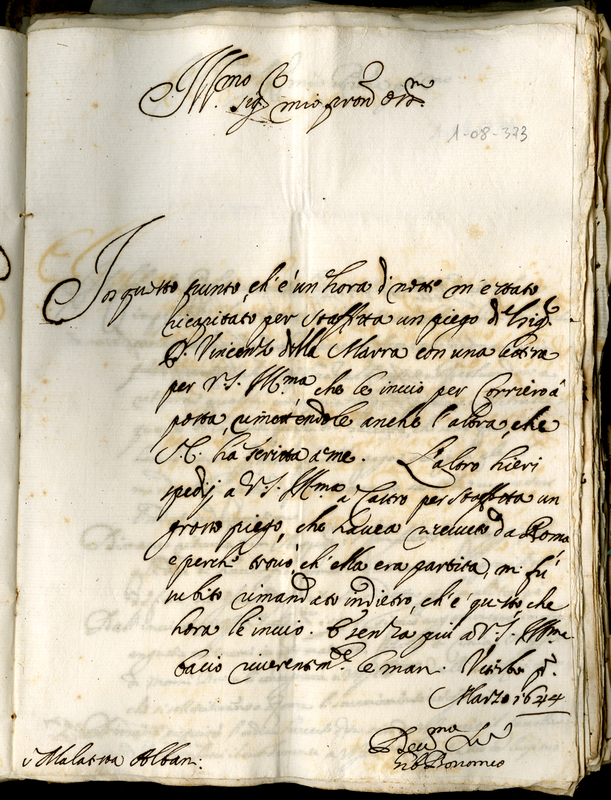 Ill.mo S.
sig. mio pron Oss.mo
1-08-373
In questo punto, ch'è un hora di notte m'è stato
ricapitato per staffetta un piego del Sig.
D. Vincenzo della Marra con una lettera
per V.S. Ill.ma che le invio per Corriero à
posta, rimettendole anche l'altra, che
S.E. hà scritta a me. L'altro hieri
spedij a V.S. Ill.ma a Castro per staffetta un
grosso piego, che havea ricevuto da Roma
e perche trovò, ch'ella era partita, mi fù
subito rimandato indietro, ch'è questo che
hora le invio. E senza più a V.S. Ill.ma
bacio riverentem.te le man. Viterbo p.
Marzo 1644
Malatesta Alban:
Bonomeo